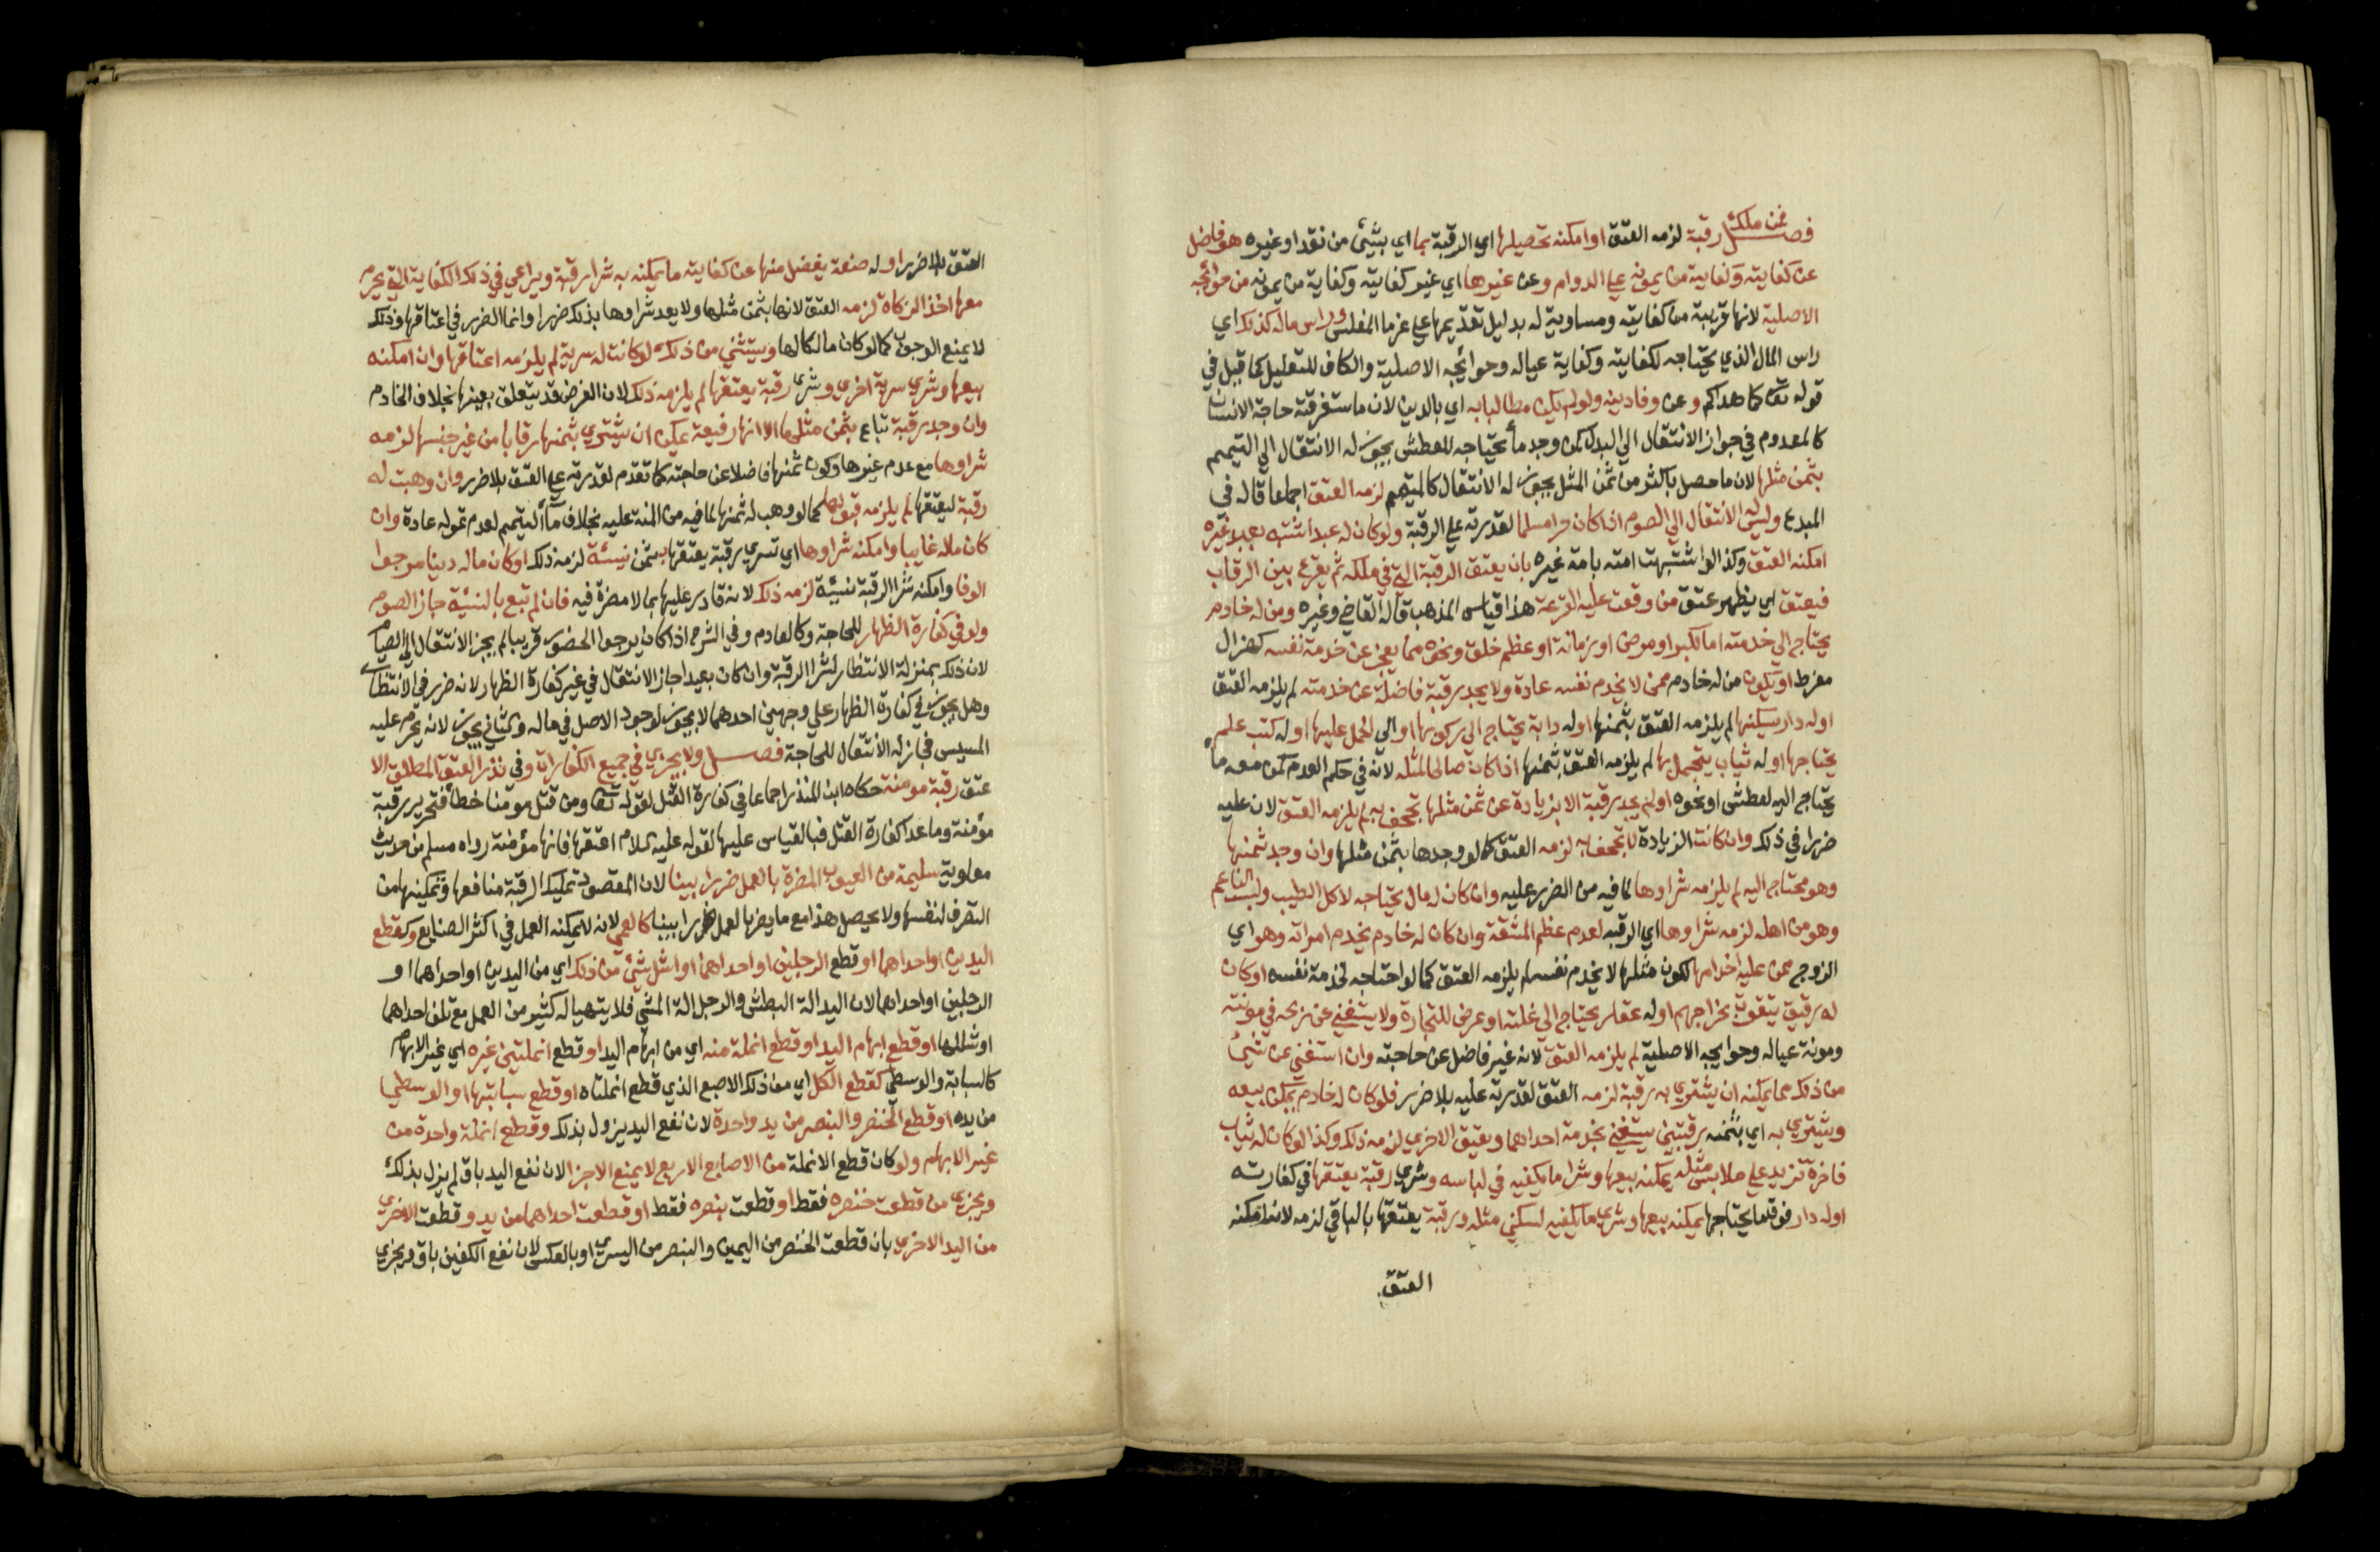 فصل فمن ملك رقبة لزمه العتق او امكنه تحصيلها اي الرقبة بما اي بشئ من نقد او غيره هو فاضل
عن كفايته وكفاية من يمونه علي الدوام وعن غيرها اي غير كفايته وكفاية من يمونه من حوائجه
الاصلية لانها قريبة من كفايته ومساوية له بدليل تقديمها علي غرما المفلس وراس ماله كذلك اي
راس المال الذي يحتاجه لكفايته وكفاية عياله وحوائجه الاصلية والكاف للتعليل كما قيل في
قوله تعالى كما هداكم وعن وفا دينه ولو لم يكن مطالبا به اي بالدين لان ما ستغرقته حاجة الانسان
كالمعدوم في جواز الانتقال الي البدل كمن وجد مأ يحتاجه للعطش يجوز له الانتقال الي التيمم
بثمن مثلها لان ما حصل باكثر من ثمن المثل يجوز له الانتقال كالمتيمم لزمه العتق اجماعا قاله في
المبدع وليس له الانتقال الي الصوم اذا كان حرا مسلما لقدرته علي الرقبة ولو كان له عبد اشتبه بعبد غيره
امكنه العتق وكذا لو اشتبهت امته بامة غيره بان يعتق الرقبة التي في ملكه ثم يقرع بين الرقاب
فيعتق اي يظهر عتق من وقعت عليه القرعة هذا قياس المذهب قاله القاضي وغيره ومن له خادم
يحتاج الي خدمته اما لكبر او مرض او زمانة او عظم خلق ونحوه مما يعجز عن خدمة نفسه كهزال
مفرط او يكون من له خادم ممن لا يخدم نفسه عادة ولا يجد رقبة فاضلة عن خدمته لم يلزمه العتق
اوله دار يسكنها لم يلزمه العتق بثمنها اوله دابة يحتاج الي ركوبها او الي الحمل عليها اوله كتب علم
يحتاجها اوله ثياب يتجمل بها لم يلزمه العتق بثمنها اذا كان صالحا لمثله لانه في حكم العدم كمن معه مأ
يحتاج اليه لعطش او نحوه او لم يجد رقبة الا بزيادة عن ثمن مثلها تجحف به لم يلزمه العتق لان عليه
ضررا في ذلك وان كانت الزيادة لا تجحف به لزمه العتق كما لو وجدها بثمن مثلها وان وجد ثمنها
وهو محتاج اليه لم يلزمه شراوها لما فيه من الضرر عليه وان كان له مال يحتاجه لاكل الطيب ولبس الناعم
وهو من اهله لزمه شراوها اي الرقبه لعدم عظم المشقة وان كان له خادم يخدم امراته وهو اي
الزوج ممن عليه اخدامها لكون مثلها لا يخدم نفسه لم يلزمه العتق كما لو احتاجه لخدمة نفسه او كان
له رقيق يتقوت بخراجهم اوله عقار يحتاج الي غلته او عرض للتجارة ولا يستغني عن ربحه في مونته
ومونة عياله وحوايجه الاصلية لم يلزمه العتق لانه غير فاضل عن حاجته وان استغني عن شئ
من ذلك مما يمكنه ان يشتري به رقبة لزمه العتق لقدرته عليه بلا ضرر فلو كان له خادم يمكن بيعه
ويشتري به اي بثمنه رقبتين يستغني بخدمة احداهما ويعتق الاخري لزمه ذلك وكذا لو كان له ثياب
فاخرة تزيد علي ملابس مثله يمكنه بيعها وشرا ما يكفيه في لباسه وشري رقبة يعتقها في كفارته
اوله دار فوق ما يحتاجها يمكنه بيعها وشري ما يكفيه لسكني مثله ورقبة يعتقها بالباقي لزمه لانه امكنه
العتق
العتق بلا ضرر اوله صنعة يفضل منها عن كفايته ما يمكنه به شرا رقبة ويراعي في ذلك الكفاية التي يحرم
معها اخذ الزكاة لزمه العتق لانها بثمن مثلها ولا يعد شراوها بذلك ضررا وانما الضرر في اعتاقها وذلك
لا يمنع الوجوب كما لو كان مالكا لها ويستثني من ذلك لو كانت له سرية لم يلزمه اعتاقها وان امكنه
بيعها وشري سرية اخري وشري رقبة يعتقها لم يلزمه ذلك لان الغرض قد يتعلق بعينها بخلاف الخادم
وان وجد رقبة تباع بثمن مثلها الا انها رفيعة يمكن ان يشتري بثمنها رقابا من غير جنسها لزمه
شراوها مع عدم غيرها وكون ثمنها فاضلا عن حاجته كما تقدم لقدرته علي العتق بلا ضرر وان وهبت له
رقبة ليعتقها لم يلزمه قبولها كما لو وهب له ثمنها لما فيه من المنة عليه بخلاف مآ التيمم لعدم تموله عادة وان
كان ماله غايبا وامكنه شراوها اي تسري رقبة يعتقها بثمن نسئة لزمه ذلك او كان ماله دينا مرجوا
الوفا وامكنه شرا الرقبة نسئة لزمه ذلك لانه قادر عليها بما لا مضرة فيه فان لم تبع بالنسئة جاز الصوم
ولو في كفارة الظهار للحاجة وكالعادم وفي الشرح اذا كان يرجوا الحضور قريبا لم يجز الانتقال الي الصيام
لان ذلك بمنزلة الانتظار لشرا الرقبة وان كان بعيدا جاز الانتقال في غير كفارة الظهار لانه ضرر في الانتظار
وهل يجوز في كفارة الظهار علي وجهين احدهما لا يجوز لوجود الاصل في ماله والثاني يجوز لانه يحرم عليه
المسيس فجاز له الانتقال للحاجة فصل ولا يجزي في جميع الكفارات وفي نذر العتق المطلق الا
عتق رقبة مومنة حكاه ابن المنذر اجماعا في كفارة القتل لقوله تعالى ومن قتل مومنا خطأ فتحرير رقبة
مؤمنة وما عدا كفارة القتل فبالقياس عليها لقوله عليه السلام اعتقها فانها مؤمنة رواه مسلم من حديث
معاوية سليمة من العيوب المضرة بالعمل ضررا بينا لان المقصود تمليك الرقبة منافعها وتمكينها من
التصرف لنفسها ولا يحصل هذا مع ما يضر بالعمل ضررا بينا كالعمي لانه لا يمكنه العمل في اكثر الصنايع وكقطع
اليدين او احداهما او قطع الرجلين او احداهما او اشل شئ من ذلك اي من اليدين او احداهما او
الرجلين او احداهما لان اليد الة البطش والرجل الة المشي فلا يتهيا له كثير من العمل مع تلف احداهما
او شللها او قطع ابهام اليد او قطع انملة منه اي من ابهام اليد او قطع انملتين من غيره اي غير الابهام
كالسبابة والوسطي كقطع الكل اي من ذلك الاصبع الذي قطع انملتاه او قطع سبابتها او الوسطي
من يده او قطع الخنصر والبنصر من يد واحدة لان نفع اليد يزول بذلك وقطع انملة واحدة من
غير الابهام ولو كان قطع الانملة من الاصابع الاربع لا يمنع الاجزا لان نفع اليد باق لم يزل بذلك
ويجزي من قطعت خنصره فقط او قطعت بنصره فقط او قطعت احداهما من يد وقطعت الاخري
من اليد الاخري بان قطعت الخنصر من اليمين والبنصر من اليسري او بالعكس لان نفع الكفين باق ويجزي